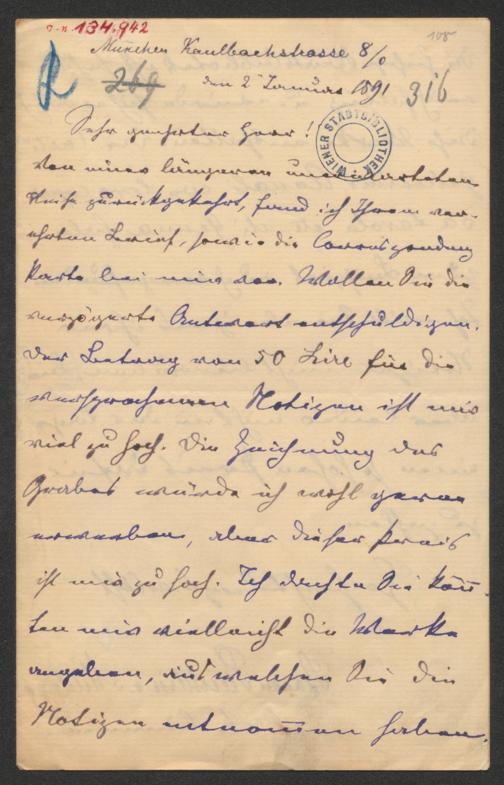 I. N. 134.942
108
München Kaulbachstrasse 8/0
269
den 2 Januar 1891
316
WIENER STADTBIBLIOTHEK
Sehr geehrter Herr!
Von einer längeren unerwarteten
Reise zurückgekehrt, fand ich Ihren ver-
ehrten Brief, sowie die Correspondenz
Karte bei mir vor. Wollen Sie die
verzögerte Antwort entschuldigen.
Der Betrag von 50 Lire für die
versprochenen Notizen ist mir
viel zu hoch. Die Zeichnung des
Grabes würde ich wohl gerne
erwerben, aber dieser Preis
ist mir zu hoch. Ich dachte Sie kön̄-
ten mir vielleicht die Werke
angeben, aus welchen Sie die
Notizen entnom̄en haben.